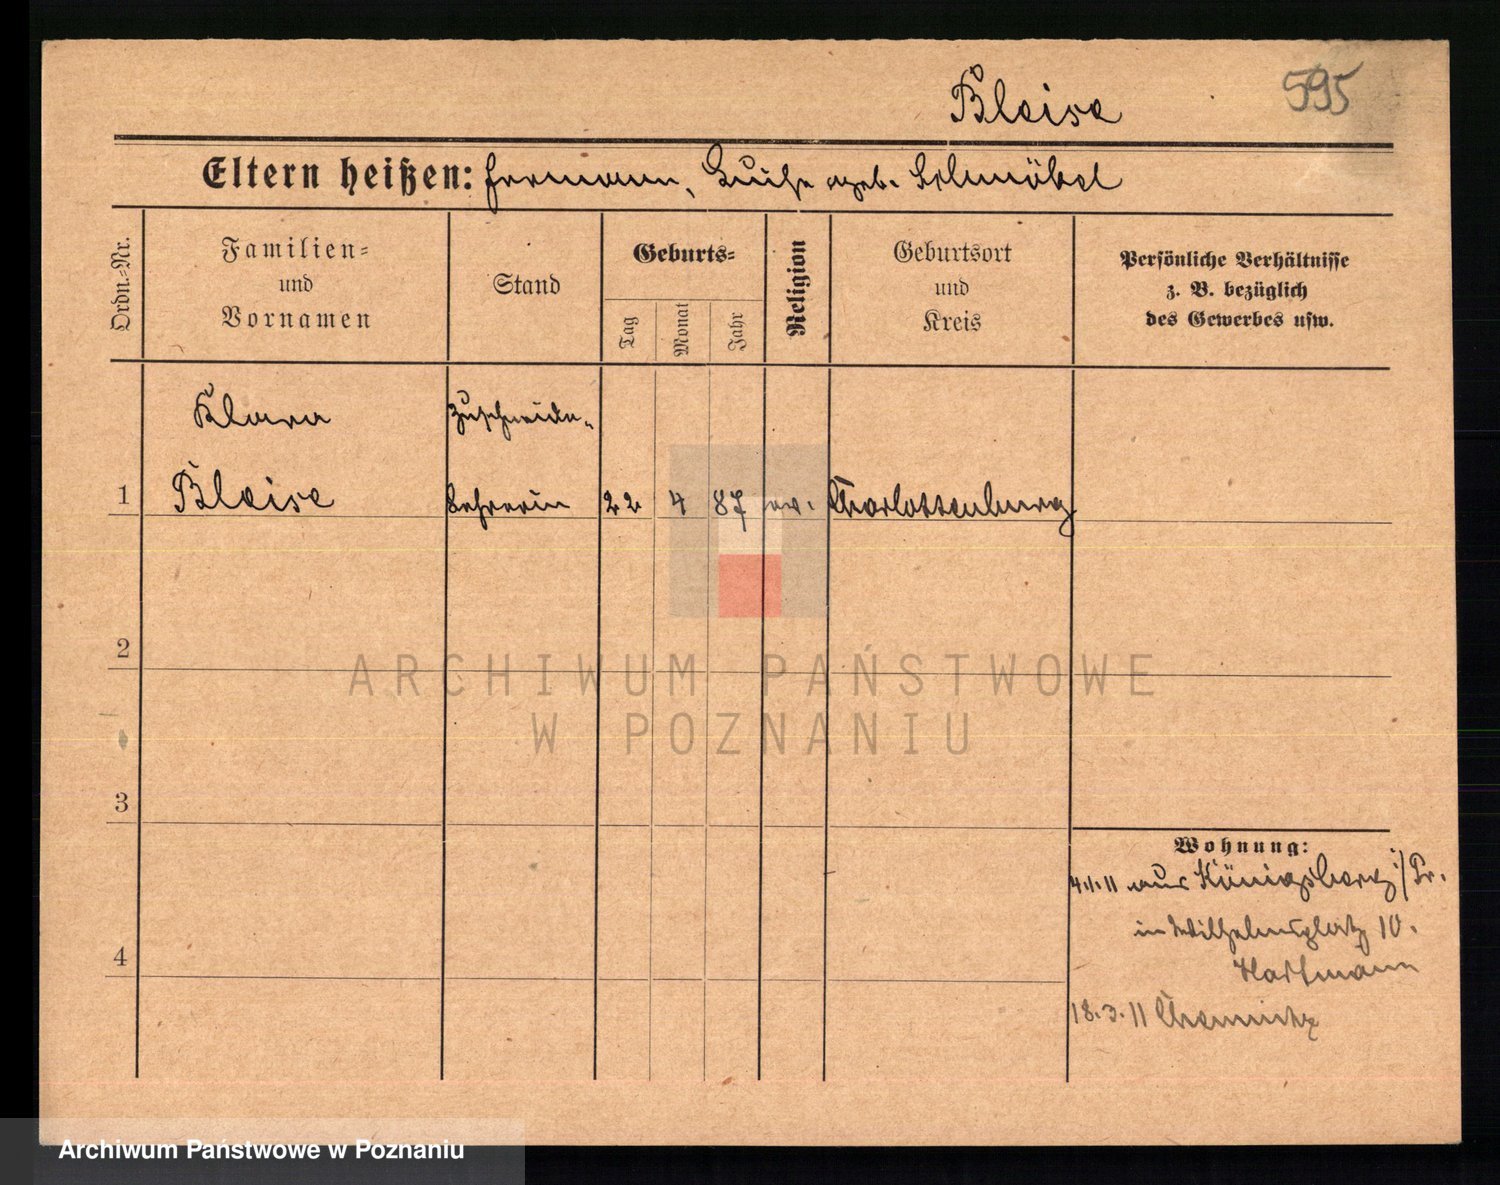 Bleise
595
Eltern heißen: Hermann, Luise geb. Schmöbel
Ordn.-Nr.
Familien-
und
Vornamen
Stand
Geburts-
Tag
Monat
Jahr
Religion
Geburtsort
und
Kreis
Persönliche Verhältnisse
z. B. bezüglich
des Gewerbes usw.
Klara Zuschneide-
1 Bleise Lehrerin 22 4 87 ev. Charlottenburg
2
3
4
Wohnung:
4.1.11 aus Königsberg i/Pr.
in Wilhelmsplatz 10.
Hartmann
18.3.11 Chemnitz
ARCHIWUM PAŃSTWOWE
W POZNANIU
Archiwum Państwowe w Poznaniu